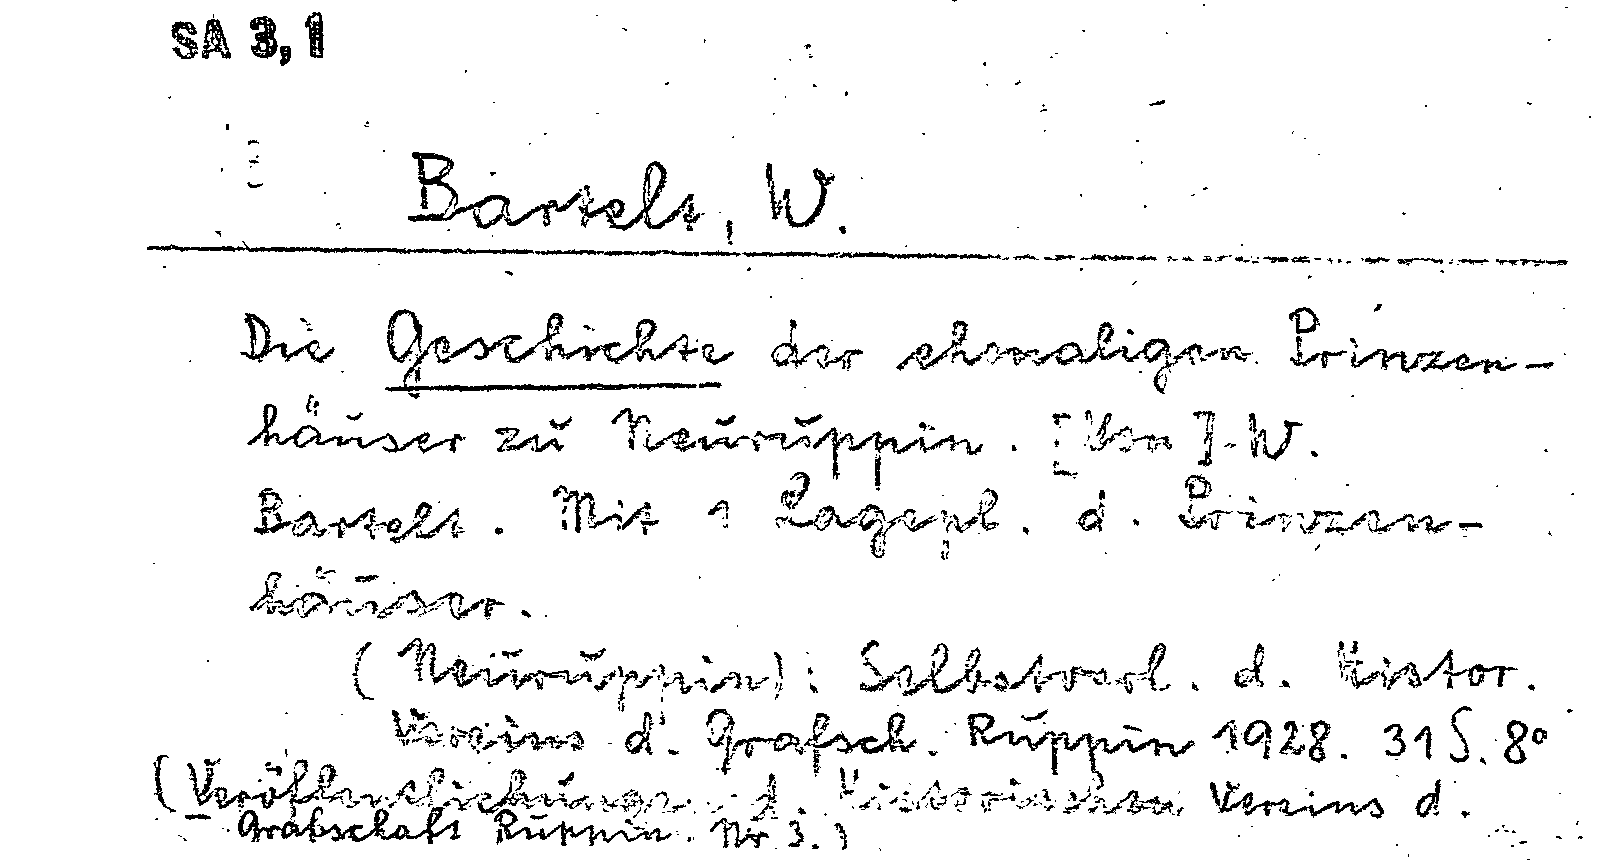 SA 3,1
Bartelt, W.
Die Geschichte der ehemaligen Prinzen-
häuser zu Neuruppin. [Von] W.
Bartelt. Mit 1 Lagepl. d. Prinzen-
häuser.
(Neuruppin): Selbstverl. d. Histor.
Vereins d. Grafsch. Ruppin 1928. 31 S. 8°
(Veröffentlichungen d. Historischen Vereins d.
Grafschaft Ruppin. Nr 3.)